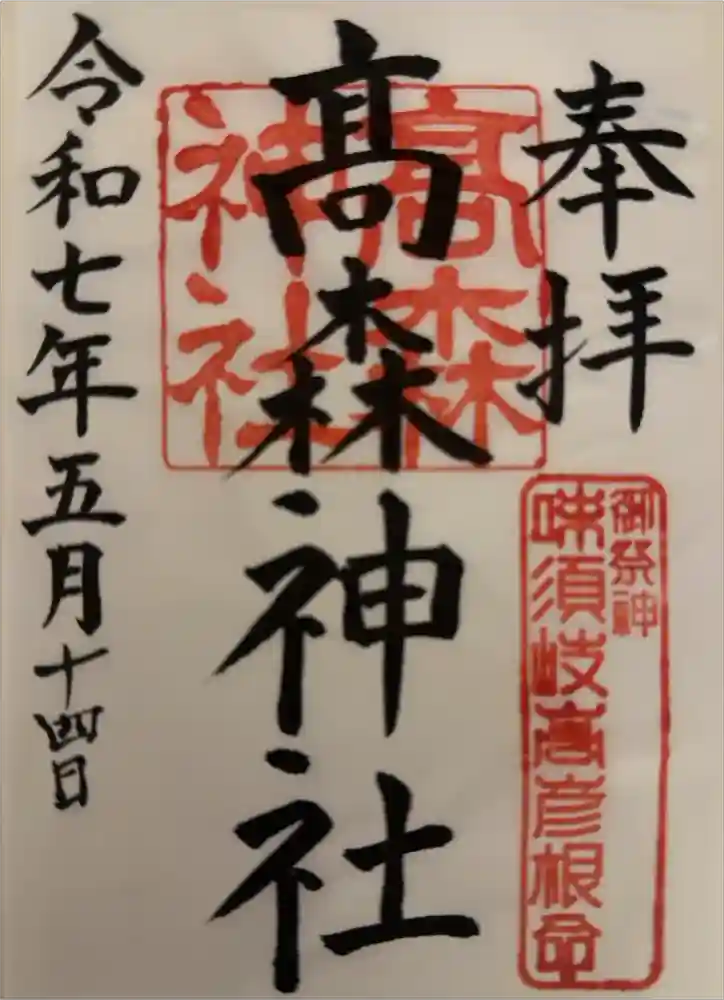 奉拝
御祭神
味須岐高彦根命
髙森神社
高森神社
令和七年五月十四日